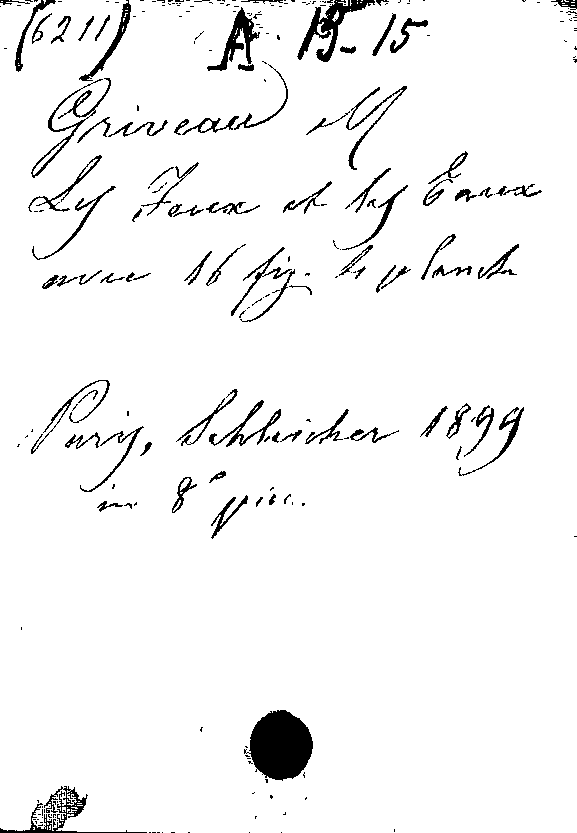 (6211) A. 13-15
Griveau M
Les Feux et les Eaux
avec 16 fig. & planch
Paris, Schleicher 1899
in 8° picc.